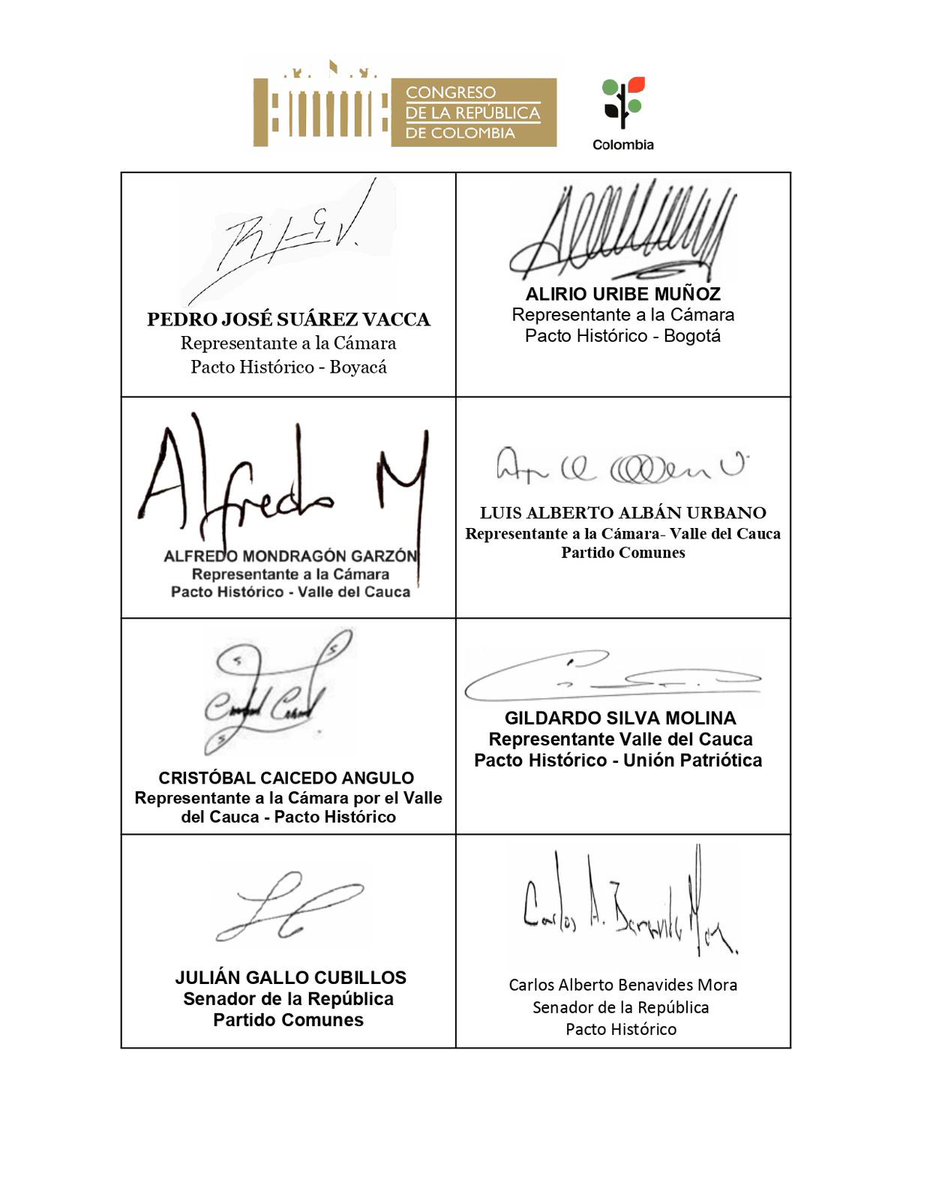 CONGRESO
DE LA REPÚBLICA
DE COLOMBIA
Colombia
PEDRO JOSÉ SUÁREZ VACCA
Representante a la Cámara
Pacto Histórico - Boyacá
ALIRIO URIBE MUÑOZ
Representante a la Cámara
Pacto Histórico - Bogotá
Alfredo M
ALFREDO MONDRAGÓN GARZÓN
Representante a la Cámara
Pacto Histórico - Valle del Cauca
LUIS ALBERTO ALBÁN URBANO
Representante a la Cámara- Valle del Cauca
Partido Comunes
CRISTÓBAL CAICEDO ANGULO
Representante a la Cámara por el Valle
del Cauca - Pacto Histórico
GILDARDO SILVA MOLINA
Representante Valle del Cauca
Pacto Histórico - Unión Patriótica
JULIÁN GALLO CUBILLOS
Senador de la República
Partido Comunes
Carlos A.
Carlos Alberto Benavides Mora
Senador de la República
Pacto Histórico